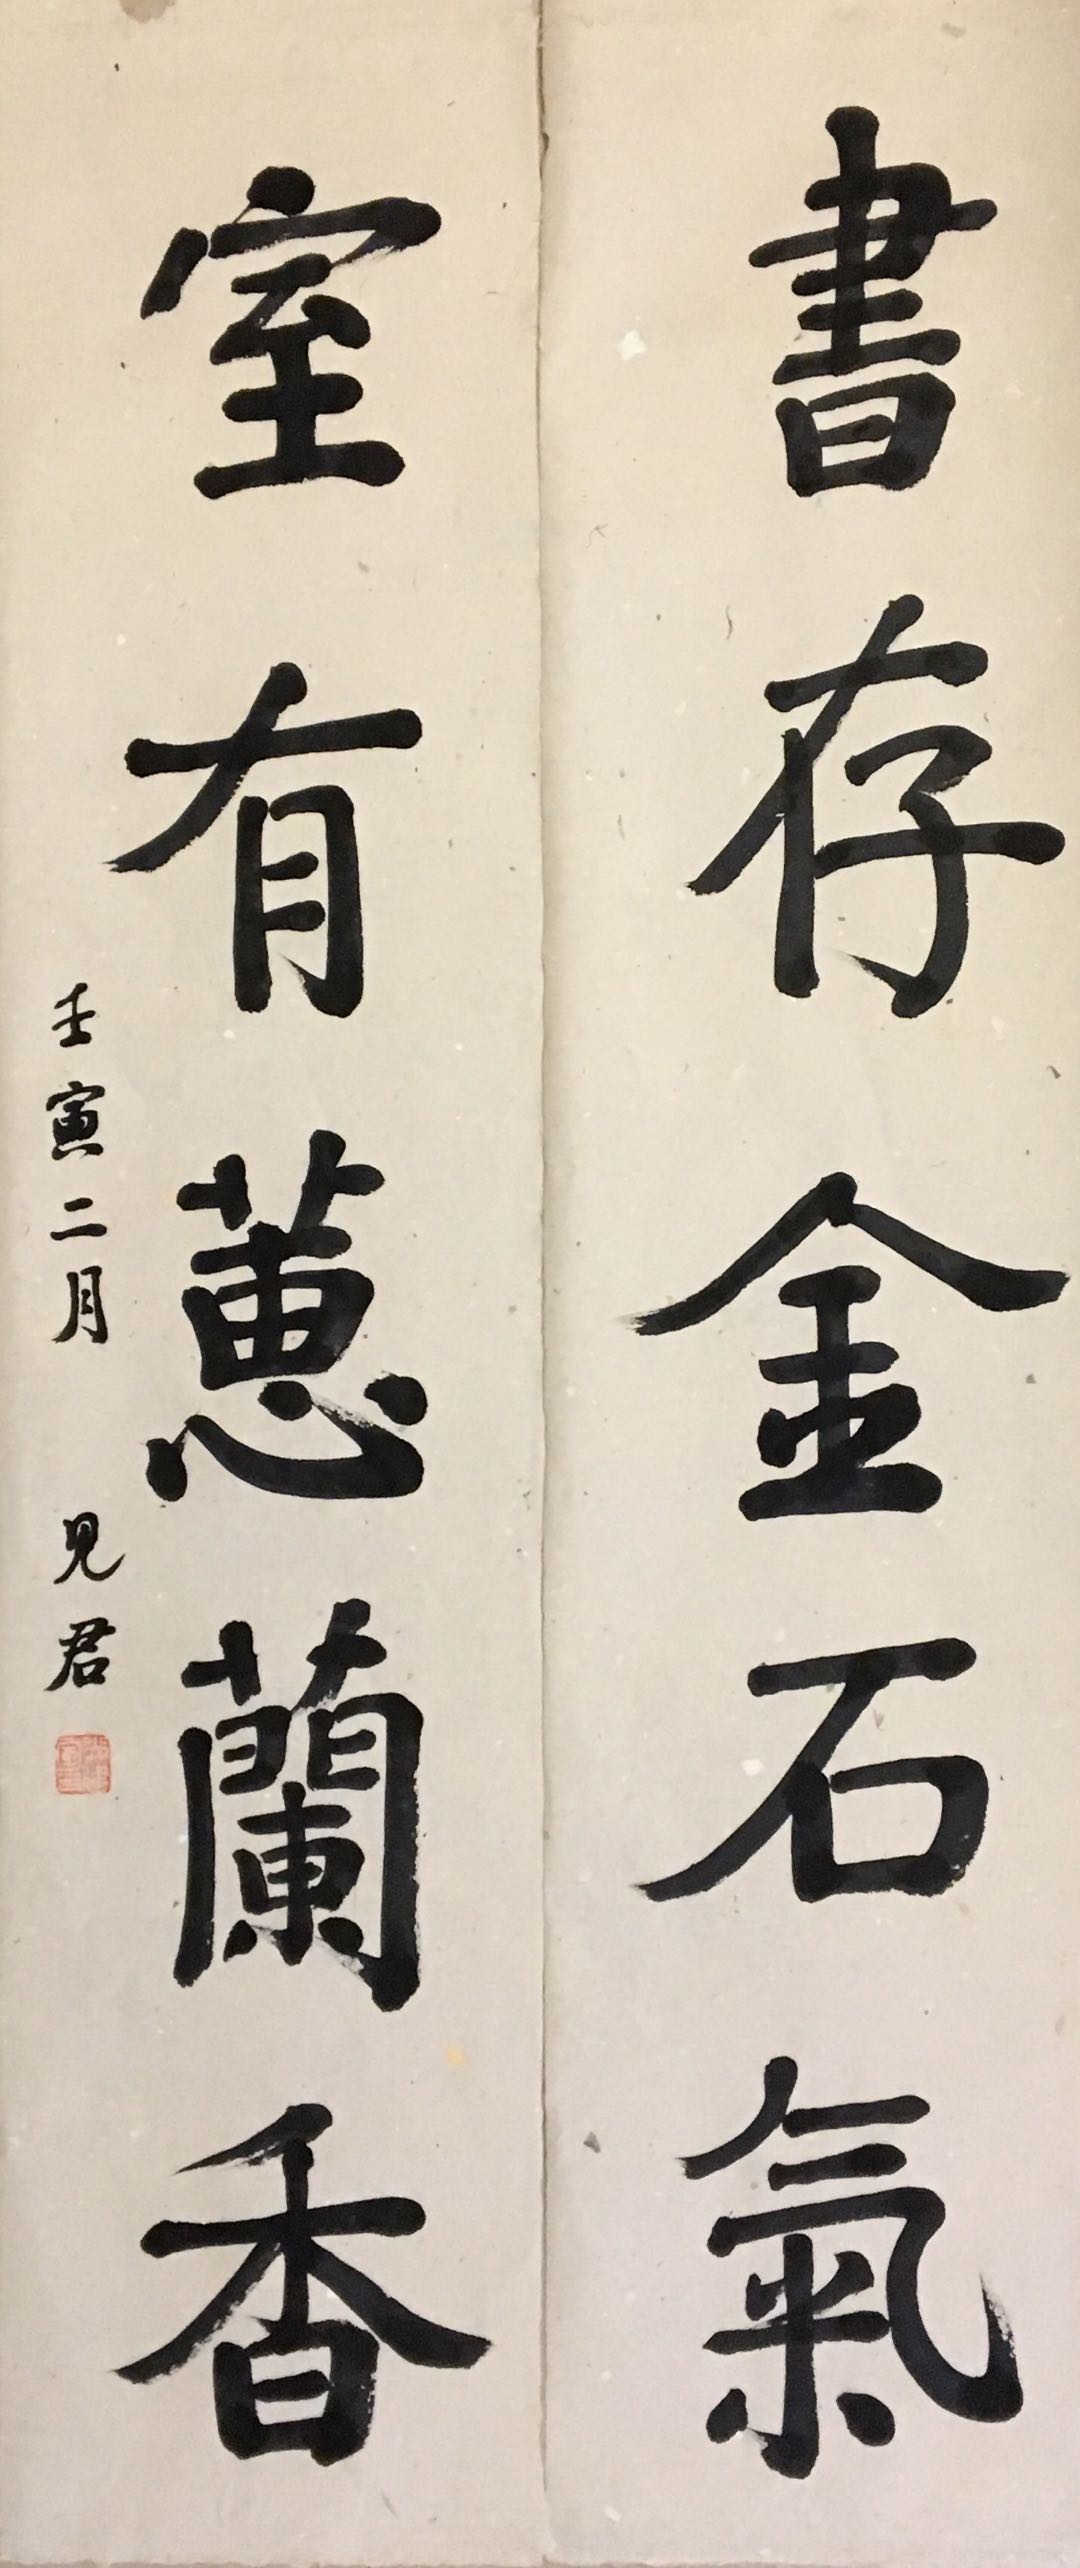 書存金石氣
室有蕙蘭香
壬寅二月 見君